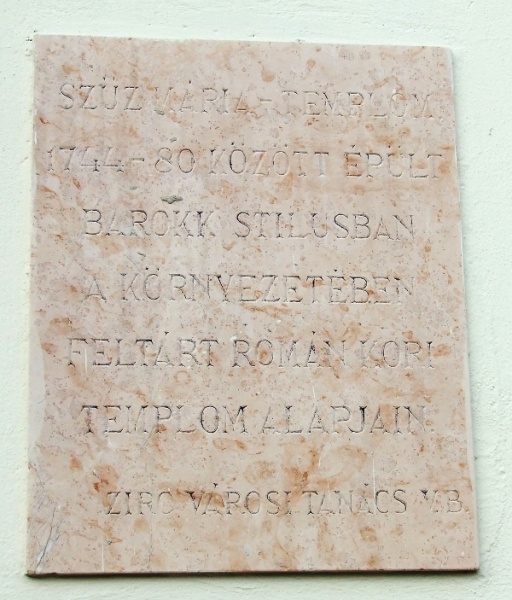 SZŰZ MÁRIA-TEMPLOM
1744-80 KÖZÖTT ÉPÜLT
BAROKK STILUSBAN
A KÖRNYEZETÉBEN
FELTÁRT ROMÁN KORI
TEMPLOM ALAPJAIN
ZIRC VÁROSI TANÁCS V.B.